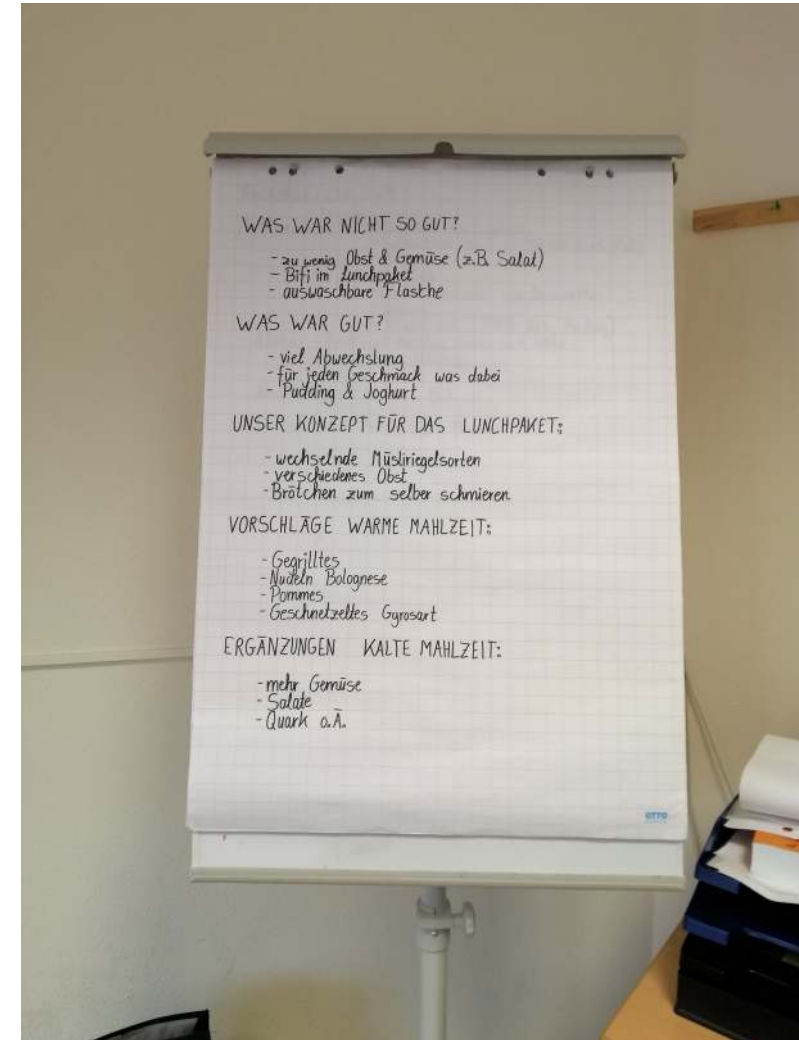 WAS WAR NICHT SO GUT?
- zu wenig Obst & Gemüse (z.B. Salat)
- Bifi im Lunchpaket
- auswaschbare Flasche
WAS WAR GUT?
- viel Abwechslung
- für jeden Geschmack was dabei
- Pudding & Joghurt
UNSER KONZEPT FÜR DAS LUNCHPAKET:
- wechselnde Müsliriegelsorten
- verschiedenes Obst
- Brötchen zum selber schmieren
VORSCHLÄGE WARME MAHLZEIT:
- Gegrilltes
- Nudeln Bolognese
- Pommes
- Geschnetzeltes Gyrosart
ERGÄNZUNGEN KALTE MAHLZEIT:
- mehr Gemüse
- Salate
- Quark o.Ä.
OTTO